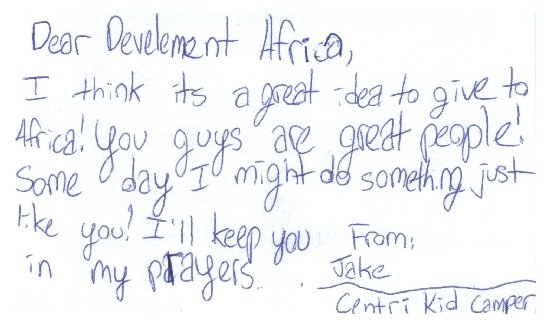 Dear Develement Africa,
I think its a great idea to give to
Africa! You guys are great people!
Some day I might do something just
like you! I'll keep you
in my prayers.
From:
Jake
Centri Kid Camper